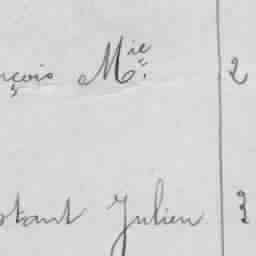 nçois Mie 2
stant Julien 3